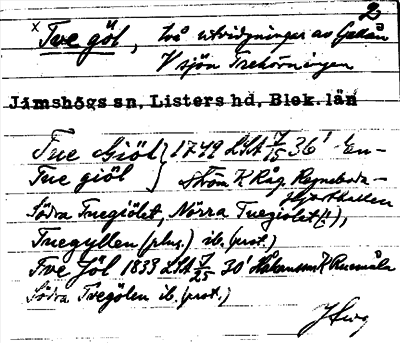 2
x Tve göl, två utvidgningar av Gallån
V sjön Trehörningen
Jämshögs sn, Listers hd, Blek. län
Tue Giöl } 1749 LSA 7/15 36' En-
Tue giöl } ström K Råg. Ragneboda-
Södra Tuegiölet, Nörra Tuegiölet (!),
Tuegyllen (plur.) ib. (prot.)
Tve Jöl 1833 LSA 7/25 30' K
Södra Tvegölen ib. (prot.)